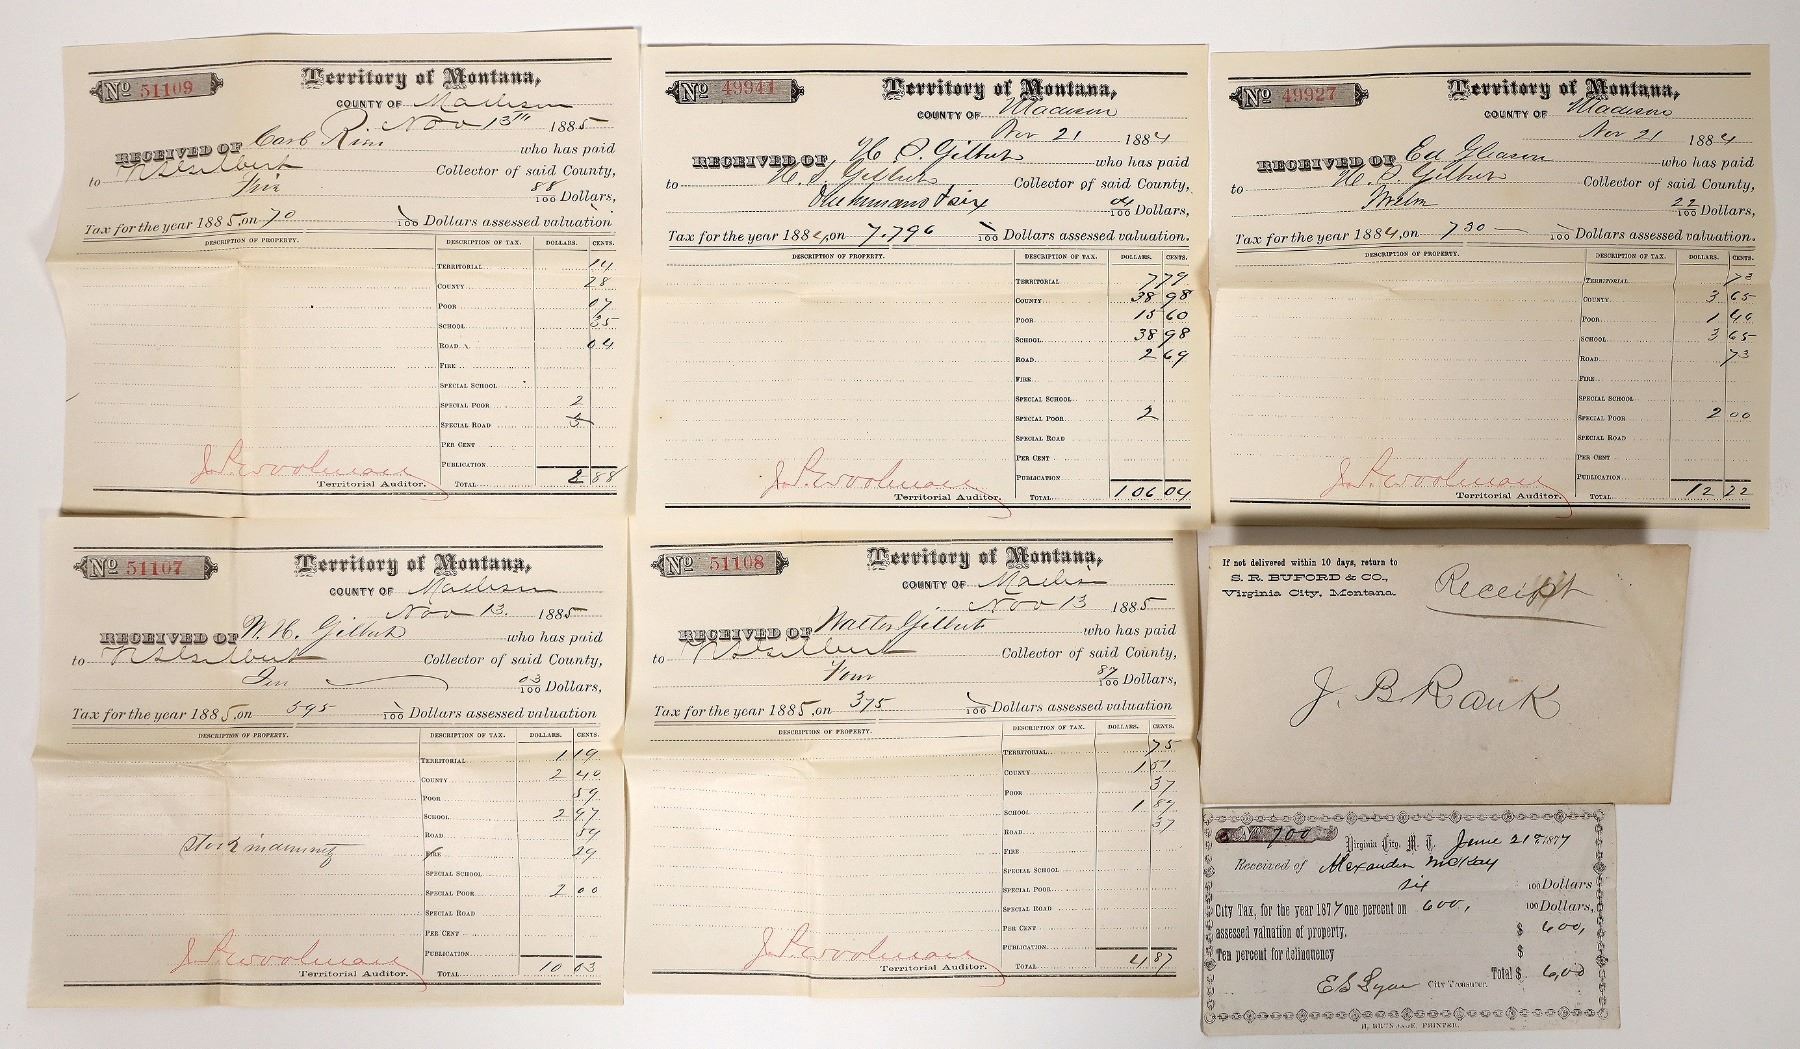 No 51109
Territory of Montana,
COUNTY OF Madison
Nov 13th 1885
RECEIVED OF Carb Rini who has paid
to Collector of said County,
88/100 Dollars,
Tax for the year 1885, on 70 /100 Dollars assessed valuation
DESCRIPTION OF PROPERTY. DESCRIPTION OF TAX. DOLLARS. CENTS.
TERRITORIAL 14
COUNTY 28
POOR 07
SCHOOL 35
ROAD 04
FIRE
SPECIAL SCHOOL
SPECIAL POOR 2
SPECIAL ROAD
PER CENT
PUBLICATION
J. P. Woolman
Territorial Auditor. TOTAL 2 88
No 49941
Territory of Montana,
COUNTY OF Madison
Nov 21 1884
RECEIVED OF H. S. Gilbert who has paid
to H. S. Gilbert Collector of said County,
One hundred & six 04/100 Dollars,
Tax for the year 1884, on 7.796 /100 Dollars assessed valuation.
DESCRIPTION OF PROPERTY. DESCRIPTION OF TAX. DOLLARS. CENTS.
TERRITORIAL 7 79
COUNTY 38 98
POOR 15 60
SCHOOL 38 98
ROAD 2 69
FIRE
SPECIAL SCHOOL
SPECIAL POOR 2
SPECIAL ROAD
PER CENT
PUBLICATION
J. P. Woolman
Territorial Auditor. TOTAL 106 04
No 49927
Territory of Montana,
COUNTY OF Madison
Nov 21 1884
RECEIVED OF Ed Gleason who has paid
to H. S. Gilbert Collector of said County,
Twelve 22/100 Dollars,
Tax for the year 1884, on 730 /100 Dollars assessed valuation.
DESCRIPTION OF PROPERTY. DESCRIPTION OF TAX. DOLLARS. CENTS.
TERRITORIAL 73
COUNTY 3 65
POOR 1 46
SCHOOL 3 65
ROAD 73
FIRE
SPECIAL SCHOOL
SPECIAL POOR 2 00
SPECIAL ROAD
PER CENT
PUBLICATION
J. P. Woolman
Territorial Auditor. TOTAL 12 22
No 51107
Territory of Montana,
COUNTY OF Madison
Nov 13. 1885
RECEIVED OF W. H. Gilbert who has paid
to Collector of said County,
Ten 03/100 Dollars,
Tax for the year 1885, on 595 /100 Dollars assessed valuation
DESCRIPTION OF PROPERTY. DESCRIPTION OF TAX. DOLLARS. CENTS.
TERRITORIAL 1 19
COUNTY 2 40
POOR 59
SCHOOL 2 97
ROAD 59
Stock indemnity FIRE 29
SPECIAL SCHOOL
SPECIAL POOR 2 00
SPECIAL ROAD
PER CENT
PUBLICATION
J. P. Woolman
Territorial Auditor. TOTAL 10 03
No 51108
Territory of Montana,
COUNTY OF Madison
Nov 13 1885
RECEIVED OF Walter Gilbert who has paid
to Collector of said County,
Four 87/100 Dollars,
Tax for the year 1885, on 375 /100 Dollars assessed valuation
DESCRIPTION OF PROPERTY. DESCRIPTION OF TAX. DOLLARS. CENTS.
TERRITORIAL 75
COUNTY 1 51
POOR 37
SCHOOL 1 87
ROAD 37
FIRE
SPECIAL SCHOOL
SPECIAL POOR
SPECIAL ROAD
PER CENT
PUBLICATION
J. P. Woolman
Territorial Auditor. TOTAL 4 87
If not delivered within 10 days, return to
S. R. BUFORD & CO.,
Virginia City, Montana.
Receipt
J. B Rank
No 700 Virginia City, M. T. June 21st 1877
Received of Alexander McKay
six 100 Dollars
City Tax, for the year 1877 one percent on 600, 100 Dollars,
assessed valuation of property, $ 600,
Ten percent for delinquency $
Total $ 6,00
City Treasurer.
PRINTER.